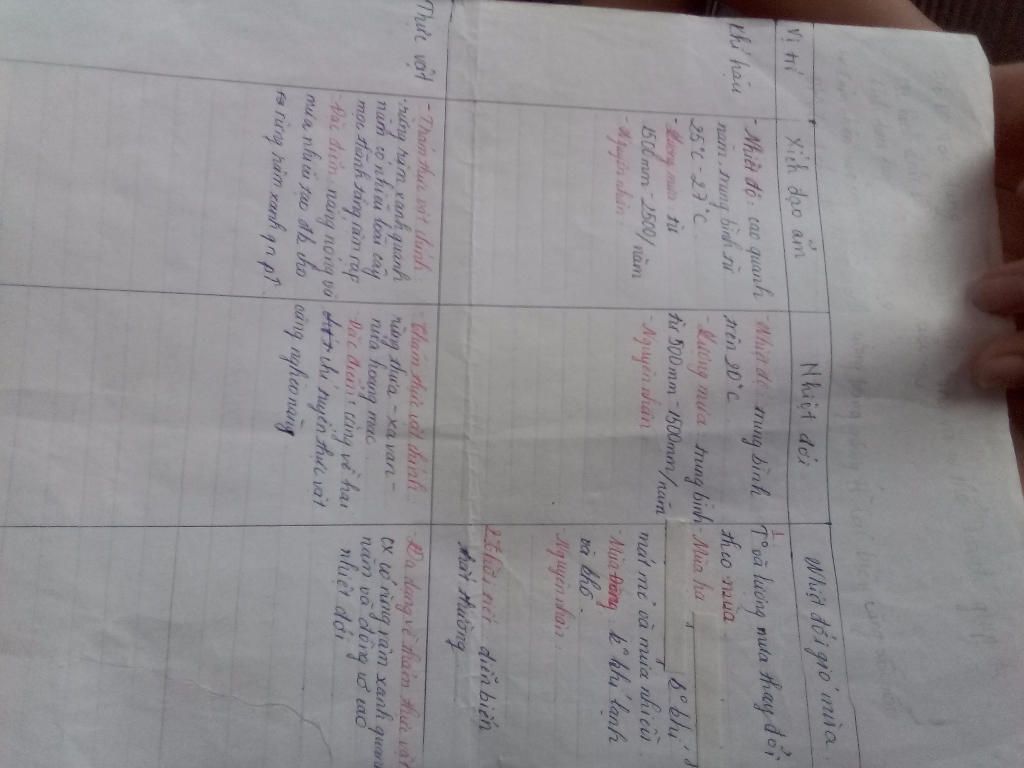 Vị trí
Xích đạo ẩm
Nhiệt đới
Nhiệt đới gió mùa
Khí hậu
- Nhiệt độ: cao quanh
năm trung bình từ
25°C - 27°C.
- Lượng mưa: từ
1500mm - 2500/năm
- Nguyên nhân:
- Nhiệt độ: trung bình
trên 20°C
- Lượng mưa: trung bình
từ 500mm - 1500mm/năm
- Nguyên nhân
1 T° và lượng mưa thay đổi
theo mùa
- Mùa hạ
mát mẻ và mưa nhiều
- Mùa đông: k° khí lạnh
và khô.
- Nguyên nhân.
2 Thời tiết: diễn biến
thất thường
Thực vật
- Thảm thực vật chính:
rừng rậm xanh quanh
năm có nhiều loài cây
mọc thành tầng rậm rạp
- Đặc điểm: nắng nóng và
mưa nhiều tạo đk cho
rừng rậm xanh q n pt.
- Thảm thực vật chính:
rừng thưa - xa van -
nửa hoang mạc
- Đặc điểm: càng về hai
chí tuyến thực vật
càng nghèo nàng
- Đa dạng về thảm thực vật
cx có rừng rậm xanh quanh
năm và đồng cỏ cao
nhiệt đới